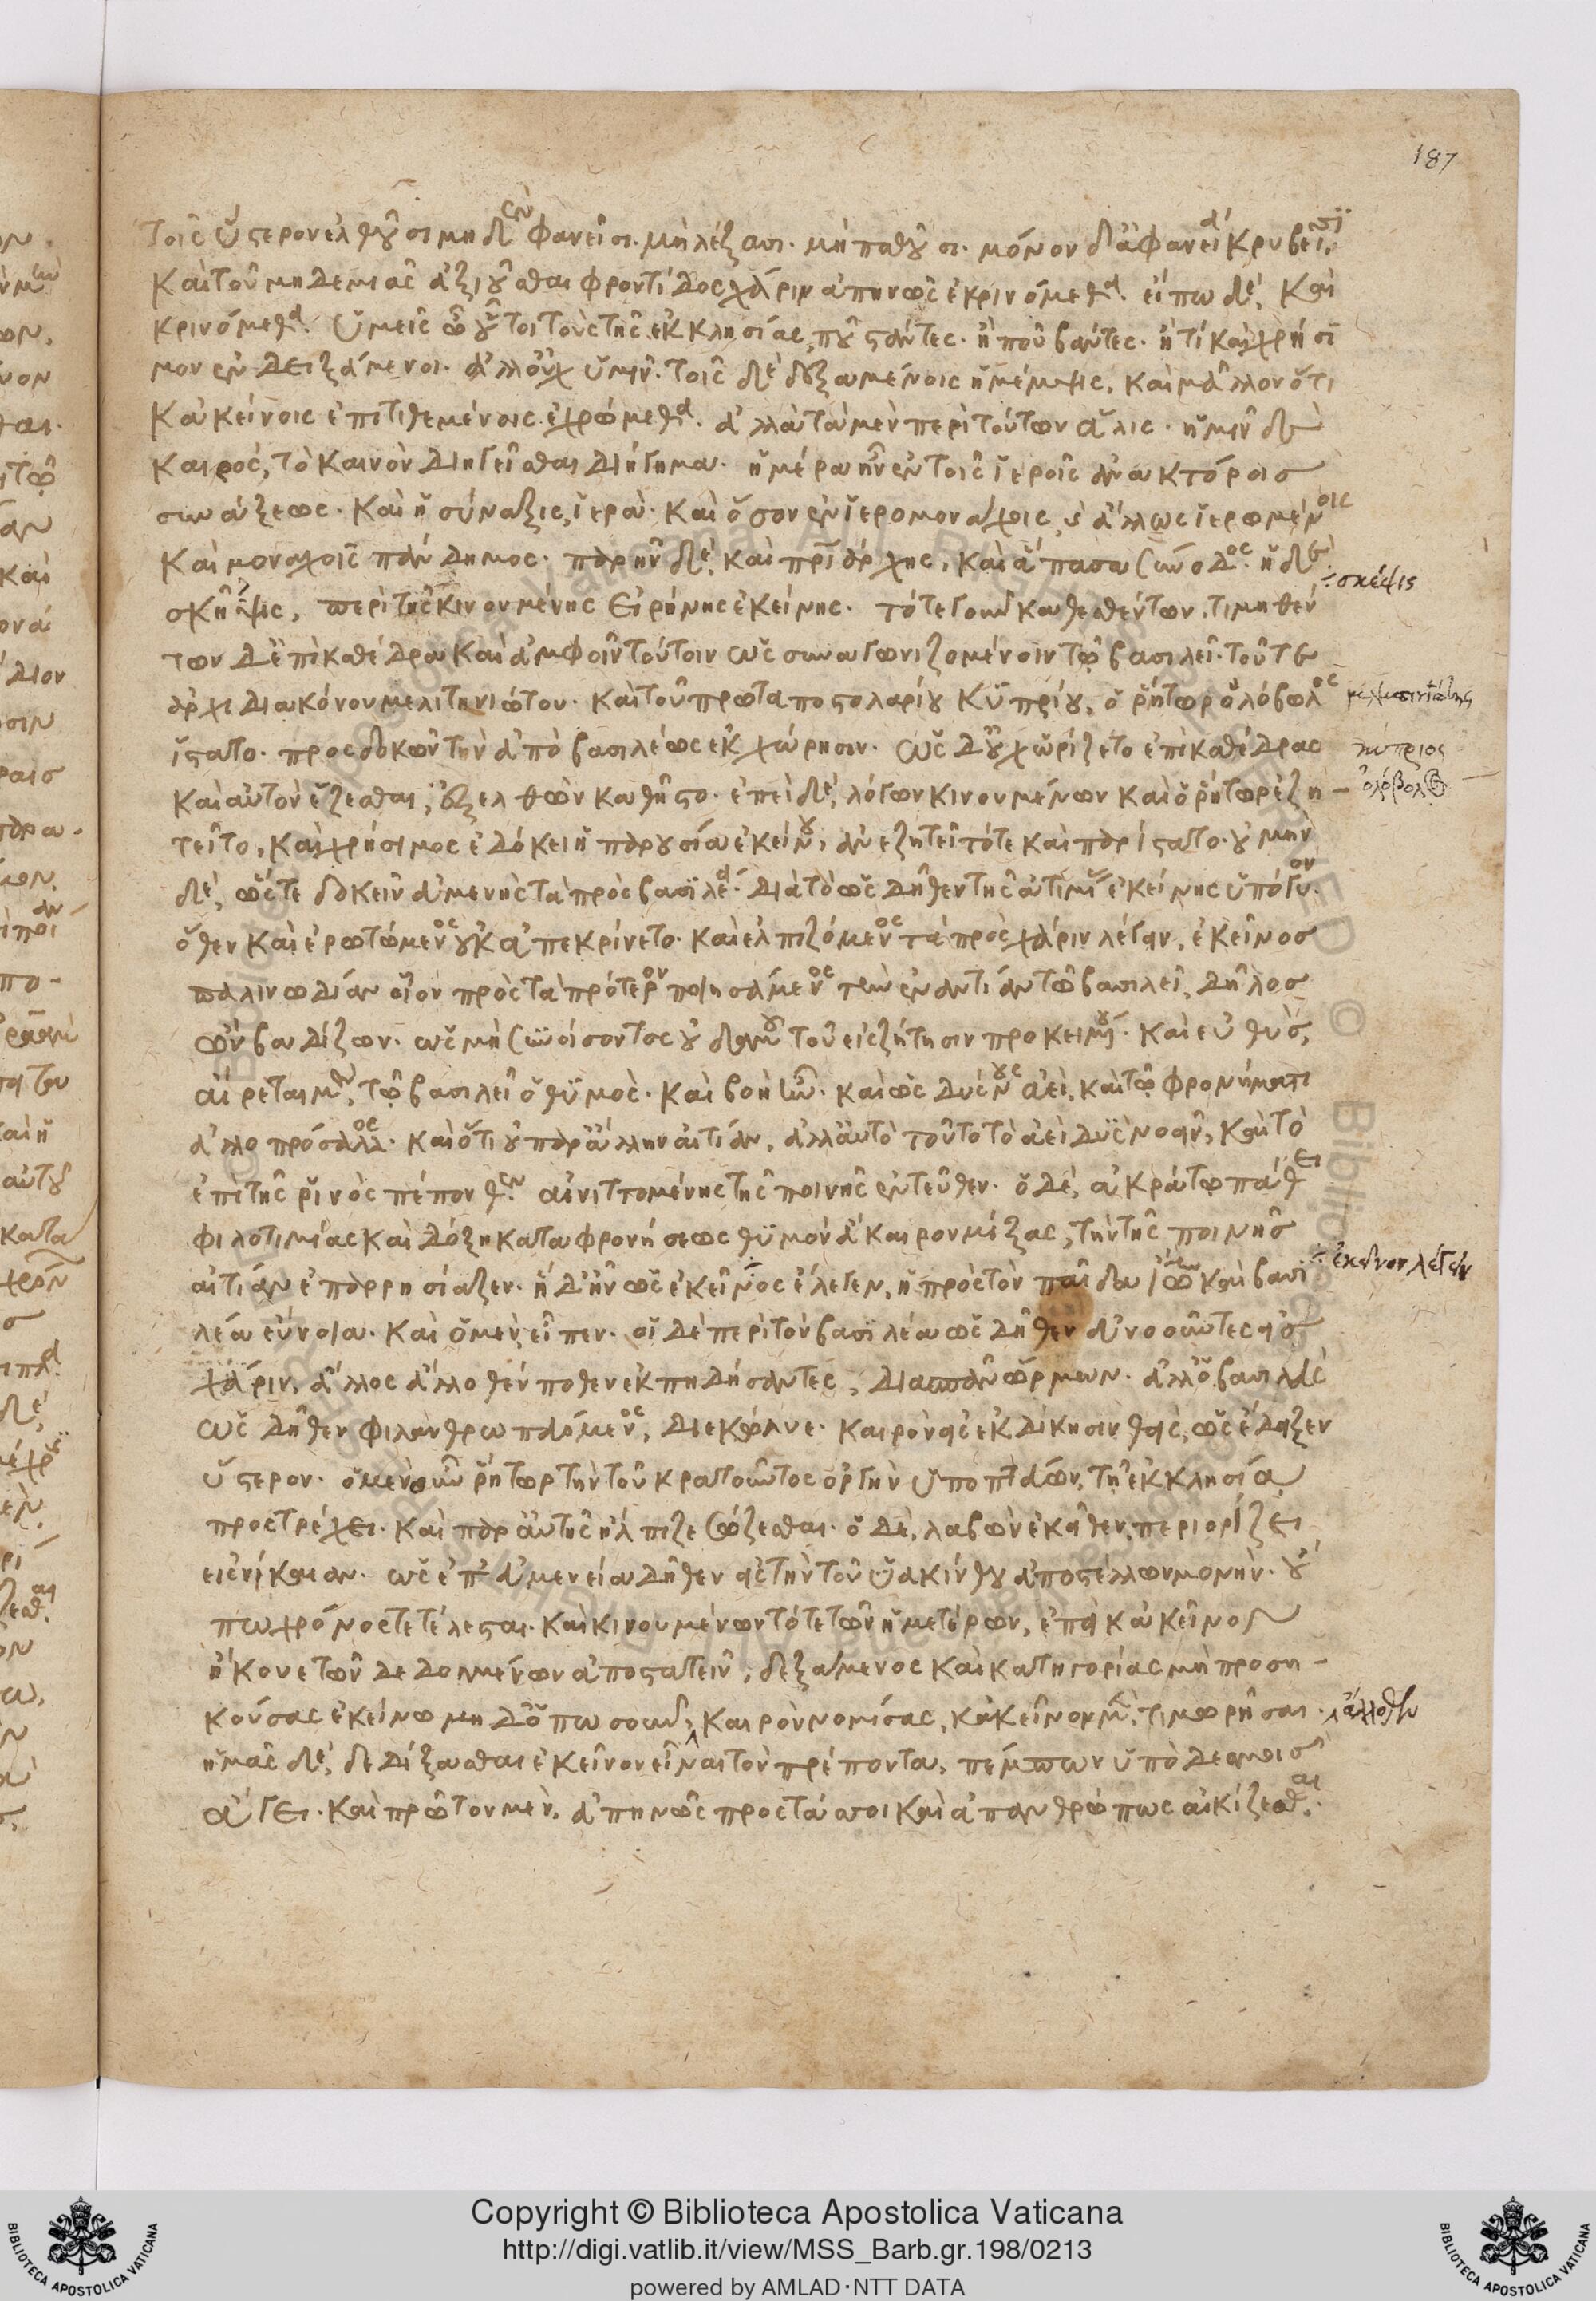 187
τοῖς ὕστερον ἐλθοῦσι μηδὲν φανεῖσι. μὴ λέξασι. μὴ παθοῦσι. μόνον διαφανεία κρυβεῖσι.
καὶ τοῦ μηδεμιᾶς ἀξιοῦσθαι φροντίδος χάριν ἀπηνῶς ἐκρινόμεθα. εἴπω δέ, καὶ
κρινόμεθα. ὑμεῖς ὦ οὗτοι τοὺς τῆς ἐκκλησίας, ποῦ στάντες. ἢ ποῦ βάντες. ἢ τί καὶ χρήσι
μον ἐνδειξάμενοι. ἀλλ' οὐχ ὑμῖν. τοῖς δὲ δεξαμένοις ἡ μέμψις, καὶ μᾶλλον ὅτι
κἀκείνοις ἐπιτιθεμένοις ἐχρώμεθα. ἀλλὰ τὰ μὲν περὶ τούτων ἅλις. ἡμῖν δὲ
καιρός, τὸ καινὸν διηγεῖσθαι διήγημα. ἡμέρα ἦν ἐν τοῖς ἱεροῖς ἀνακτόροισ
συνάξεως. καὶ ἡ σύναξις, ἱερά. καὶ ὅσον ἐν ἱερομονάχοις, καὶ ἄλλως ἱερωμένοις
καὶ μοναχοῖς πάνδημος. παρῆν δὲ, καὶ πριάρχης, καὶ ἅπασα σύνοδος. ἡ δὲ
σκῆψις, περὶ τῆς κινουμένης εἰρήνης ἐκείνης. τότε γοῦν καθεσθέντων, τιμηθέν
των δ' ἐπὶ καθέδρα καὶ ἀμφοῖν τούτοιν ὡς συναγωνιζομένοιν τῷ βασιλεῖ. τοῦ τε
ἀρχιδιακόνου μελιτηνιώτου. καὶ τοῦ πρωταποστολαρίου κυπρίου, ὁ ῥήτωρ ὁλόβωλος
ἵστατο. προσδοκῶν τὴν ἀπὸ βασιλέως ἐκχώρησιν. ὡς δ' οὐ χωρίζετο ἐπὶ καθέδρας
καὶ αὐτὸν ἕζεσθαι, ἐξελθὼν καθῆστο. ἐπεὶ δὲ, λόγων κινουμένων καὶ ὁ ῥήτωρ ἐζη
τεῖτο, καὶ χρήσιμος ἐδόκει ἡ παρουσία ἐκείνου, ἀνεζητεῖτό τε καὶ παρίστατο. οὐ μὴν
δὲ, ὥστε δοκεῖν εὐμενὴς τὰ πρὸς βασιλέα. διὰ τὸ ὡς δῆθεν τῆς ἀτιμίας ἐκείνης ὑπόγυον.
ὅθεν καὶ ἐρωτώμενος οὐκ ἀπεκρίνετο. καὶ ἐλπιζόμενος τὰ πρὸς χάριν λέγειν, ἐκεῖνος
παλινωδίαν οἷον πρὸς τὰ πρότερον ποιησάμενος τὴν ἐναντίαν τῷ βασιλεῖ, δῆλος
ὢν βαδίζων. ὡς μὴ συνοίσοντος οὐδαμοῦ τοῦ εἰς ζήτησιν προκειμένου. καὶ εὐθὺς,
αἴρεται μὲν, τῷ βασιλεῖ ὁ θυμὸς. καὶ βοὴ ἦν. καὶ ὡς δύσνους ἀεὶ, καὶ τῷ φρονήματι
ἀλλοπρόσαλλος. καὶ ὅτι οὐ παρ' ἄλλην αἰτίαν, ἀλλ' αὐτὸ τοῦτο τὸ ἀεὶ δυσνοεῖν, καὶ τὸ
ἐπὶ τῆς ῥινὸς πέπονθεν αἰνιττομένης τῆς ποινῆς ἐντεῦθεν. ὁ δὲ, ἀκράτῳ πάθει
φιλοτιμίας καὶ δόξη καταφρονήσεως θυμὸν ἄκαιρον μίξας, τὴν τῆς ποινῆς
αἰτίαν ἐπαρρησίαζεν. ἡ δ' ἦν ὡς ἐκεῖνος ἔλεγεν, ἡ πρὸς τὸν παῖδα ἰω καὶ βασι
λέα εὔνοια. καὶ ὁ μὲν εἶπεν. οἱ δὲ περὶ τὸν βασιλέα ὡς δῆθεν εὐνοοῦντες εἰς
χάριν, ἄλλος ἄλλοθέν ποθεν ἐκπηδήσαντες, διασπᾶν ὥρμων. ἀλλ' ὁ βασιλεὺς
ὡς δῆθεν φιλανθρωπευόμενος, διεκώλυε. καιρὸν εἰς ἐκδίκησιν θεὶς, ὡς ἔδειξεν
ὕστερον. ὁ μὲν οὖν ῥήτωρ τὴν τοῦ κρατοῦντος ὀργὴν ὑποπτεύων, τῇ ἐκκλησίᾳ
προστρέχει. καὶ παρ' αὐτῆς ἤλπιζε σώζεσθαι. ὁ δὲ, λαβὼν ἐκεῖθεν, περιορίζει
εἰς νίκαιαν. ὡς ἐπ' εὐμενείᾳ δῆθεν εἰς τὴν τοῦ ὑακίνθου ἀποστέλλων μονήν. οὔ
πω χρόνος τετέλεσται. καὶ κινουμένων τότε τῶν ἡμετέρων, ἐπεὶ κἀκεῖνος
ἤκουε τῶν δεδογμένων ἀποστατεῖν, δεξάμενος καὶ κατηγορίας μὴ προση
κούσας ἐκείνῳ μηδ' ὅπωσοῦν, καιρὸν νομίσας, κἀκεῖνον μὲν, τιμωρῆσαι
ἡμᾶς δὲ, δεδίξασθαι ἐκεῖνον εἶναι τὸν πρέποντα, πέμπων ὑπὸ δεσμοῖς
ἄγει. καὶ πρῶτον μὲν, ἀπηνῶς προστάσσει καὶ ἀπανθρώπως αἰκίζεσθαι.
σκέψις
κύπριος
ὁλόβολος
ἐκεῖνον λέγειν
Copyright © Biblioteca Apostolica Vaticana
http://digi.vatlib.it/view/MSS_Barb.gr.198/0213
powered by AMLAD·NTT DATA